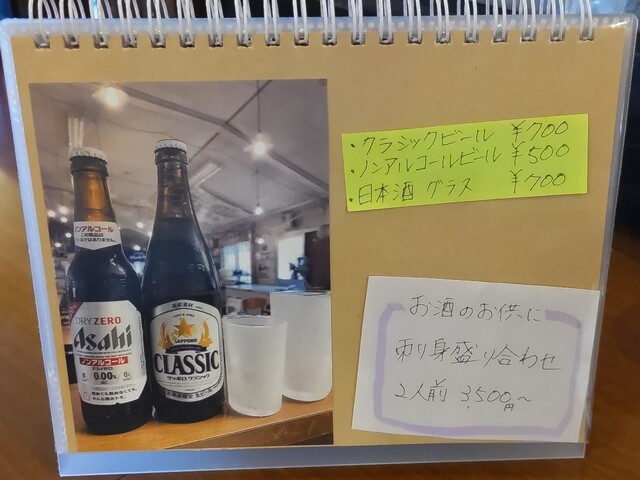 ・クラシックビール ¥700
・ノンアルコールビール ¥500
・日本酒 グラス ¥700
お酒のお供に
刺り身盛り合わせ
2人前 3,500円～
ノンアルコール
DRY ZERO
Asahi
ノンアルコール
ドライゼロ
0.00%
SAPPORO
CLASSIC
サッポロクラシック